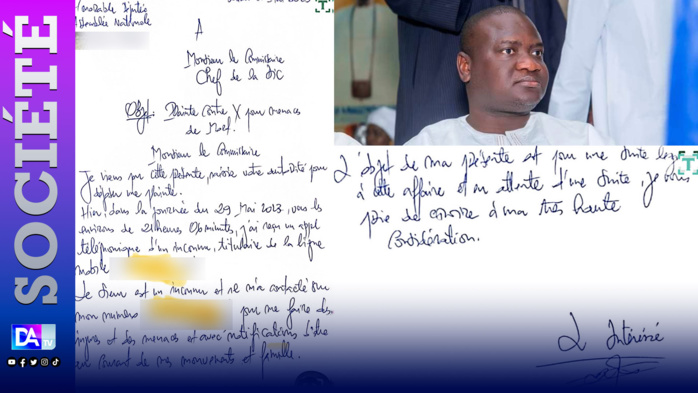 SOCIÉTÉ
DA
TV
Honorable Député
Assemblée Nationale
A
Monsieur le Commissaire
Chef de la DIC
Objet: Plainte contre X pour menaces
de Mort.
Monsieur le Commissaire
Je viens par cette présente, auprès votre autorité pour
déposer une plainte.
Hier, dans la journée du 29 Mai 2023, vers les
environs de 21 heures 06 minutes, j'ai reçu un appel
téléphonique d'un inconnu, titulaire de la ligne
mobile
Ce dernier est un inconnu et il m'a contacté sur
mon numéro pour me faire des
injures et des menaces et avec notifications d'être
au courant de mes mouvements et famille.
L'objet de ma présente est pour une suite
à cette affaire et en attente d'une suite, je vous
prie de croire à ma très haute
Considération.
L'Intéressé